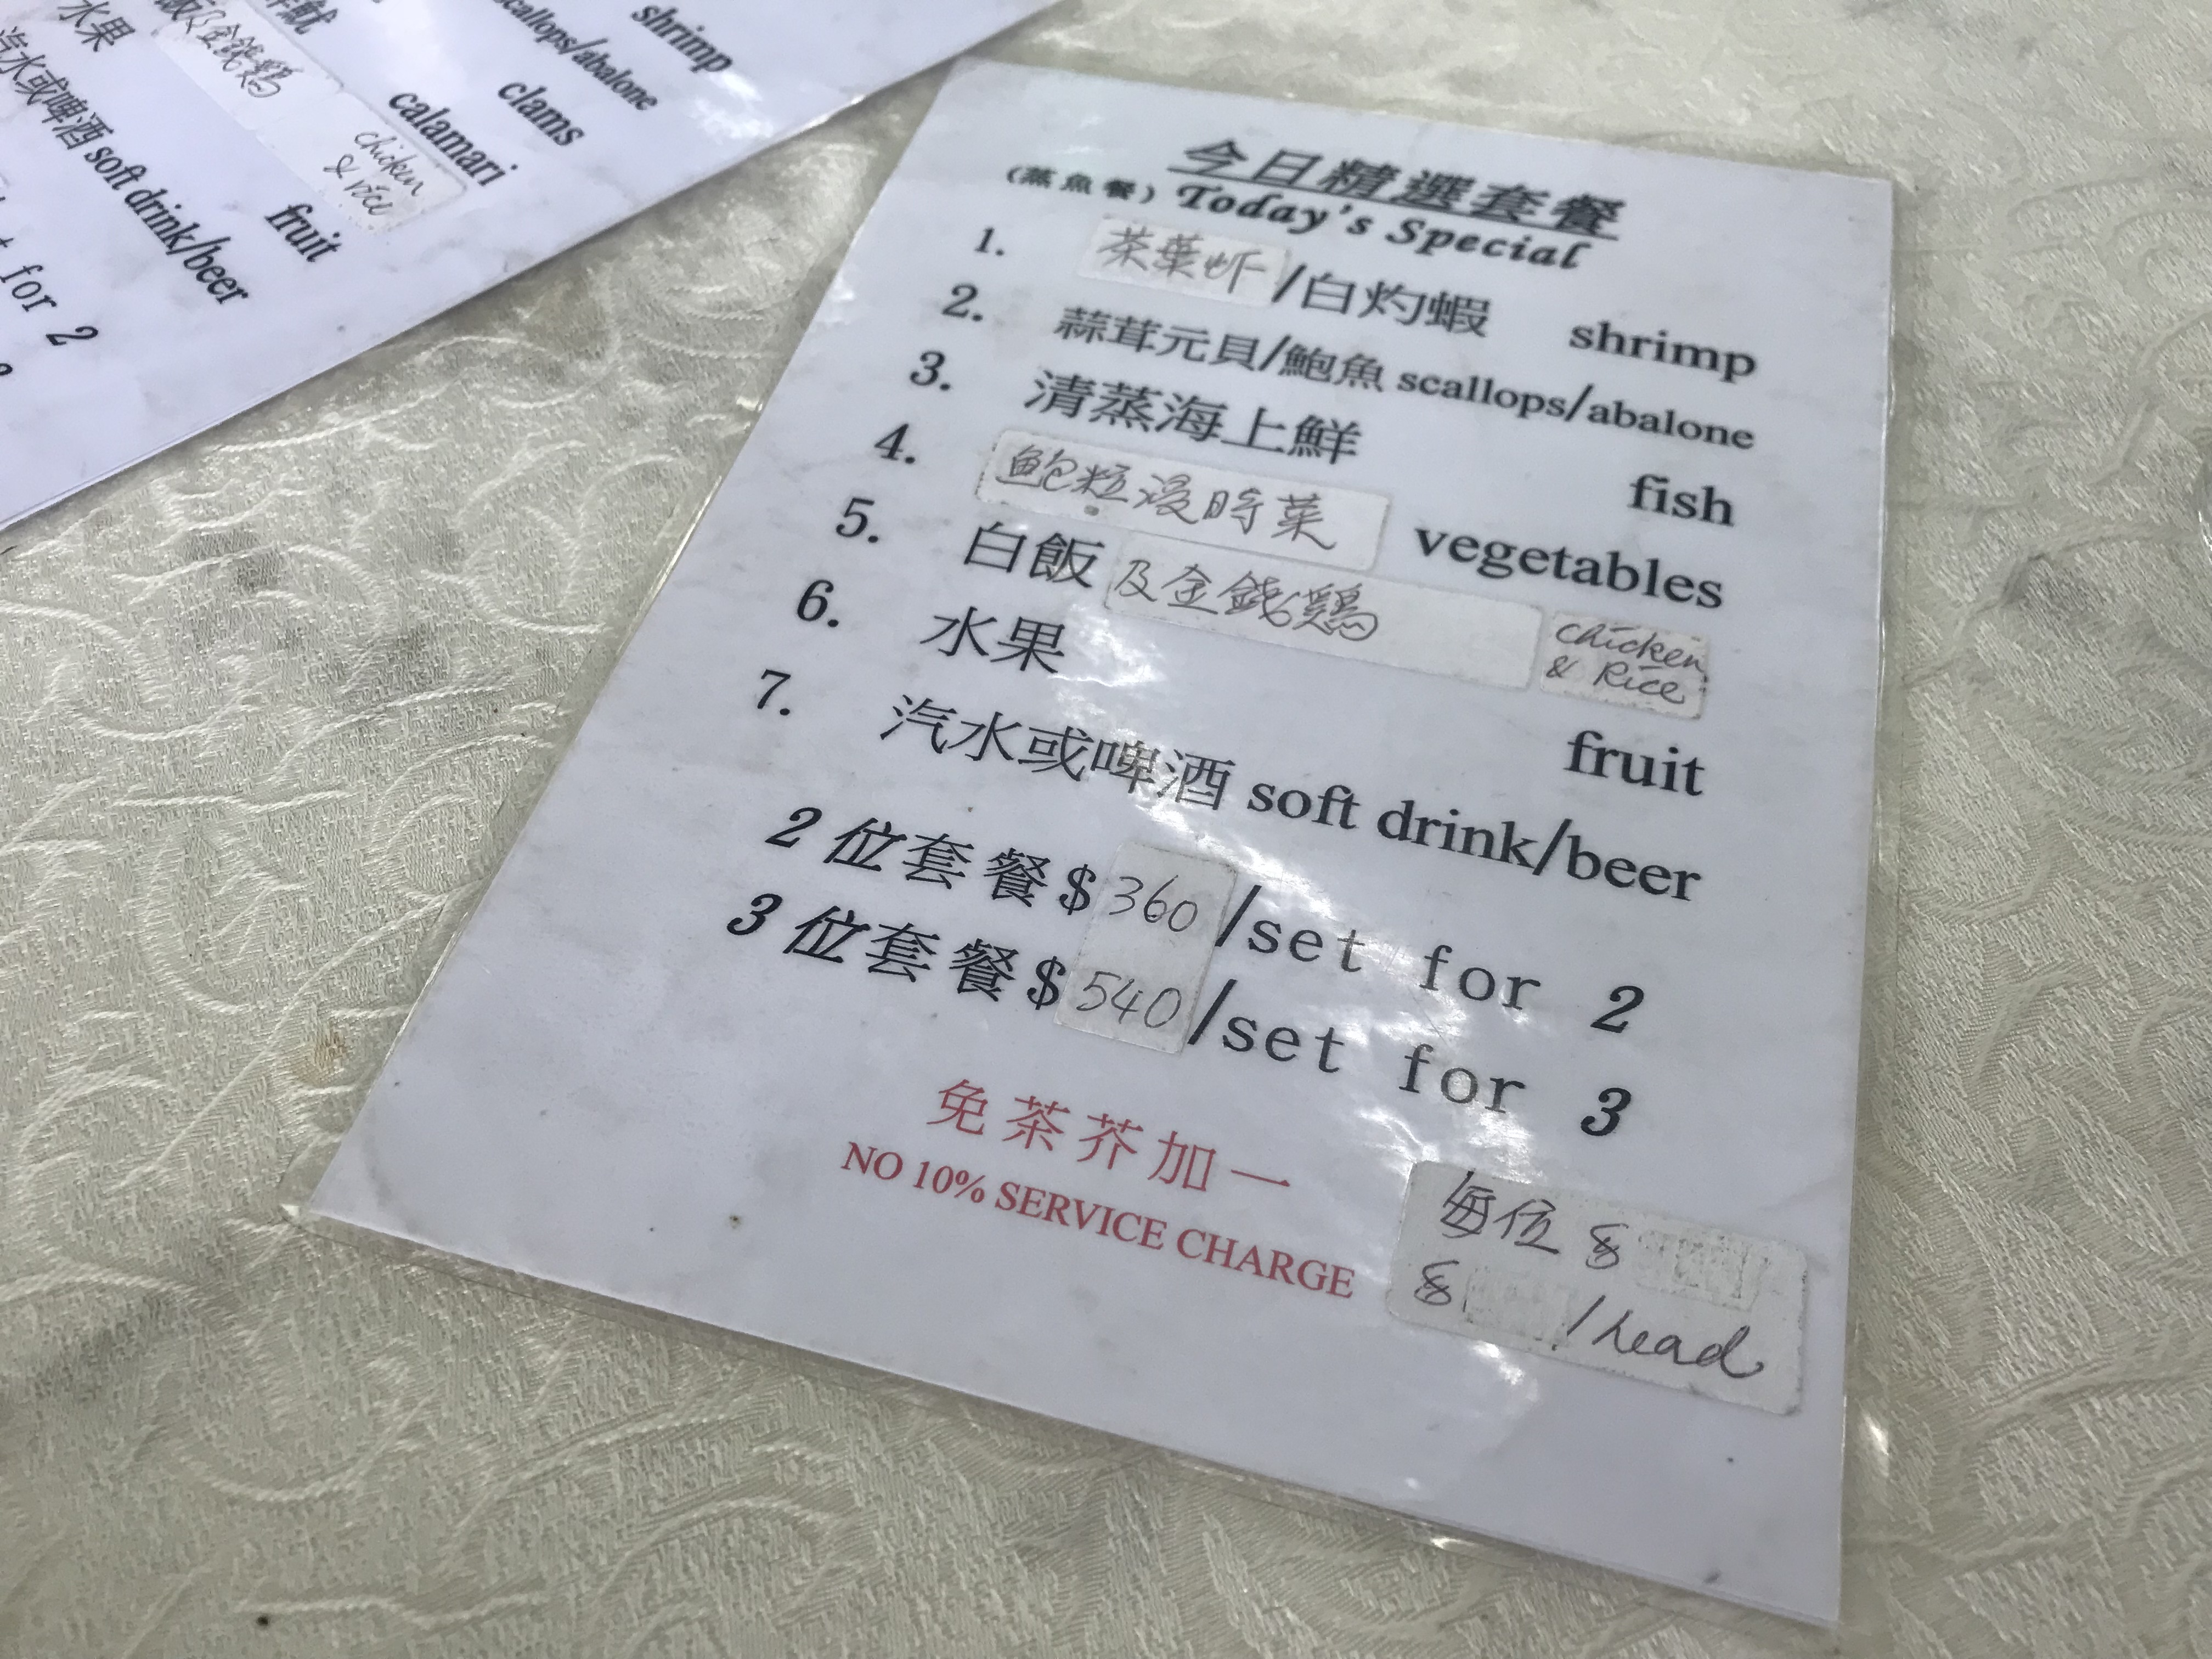 shrimp
scallops/abalone
clams
calamari
水果
及金錢鷄
chicken
& rice
fruit
汽水或啤酒 soft drink/beer
for 2
今日精選套餐
(蒸魚餐) Today's Special
1. 茶葉㞮/白灼蝦 shrimp
2. 蒜茸元貝/鮑魚 scallops/abalone
3. 清蒸海上鮮 fish
4. 鮑粒浸時菜 vegetables
5. 白飯及金錢鷄 chicken & Rice
6. 水果 fruit
7. 汽水或啤酒 soft drink/beer
2位套餐$360/set for 2
3位套餐$540/set for 3
免茶芥加一
NO 10% SERVICE CHARGE
每位 $
$ /head